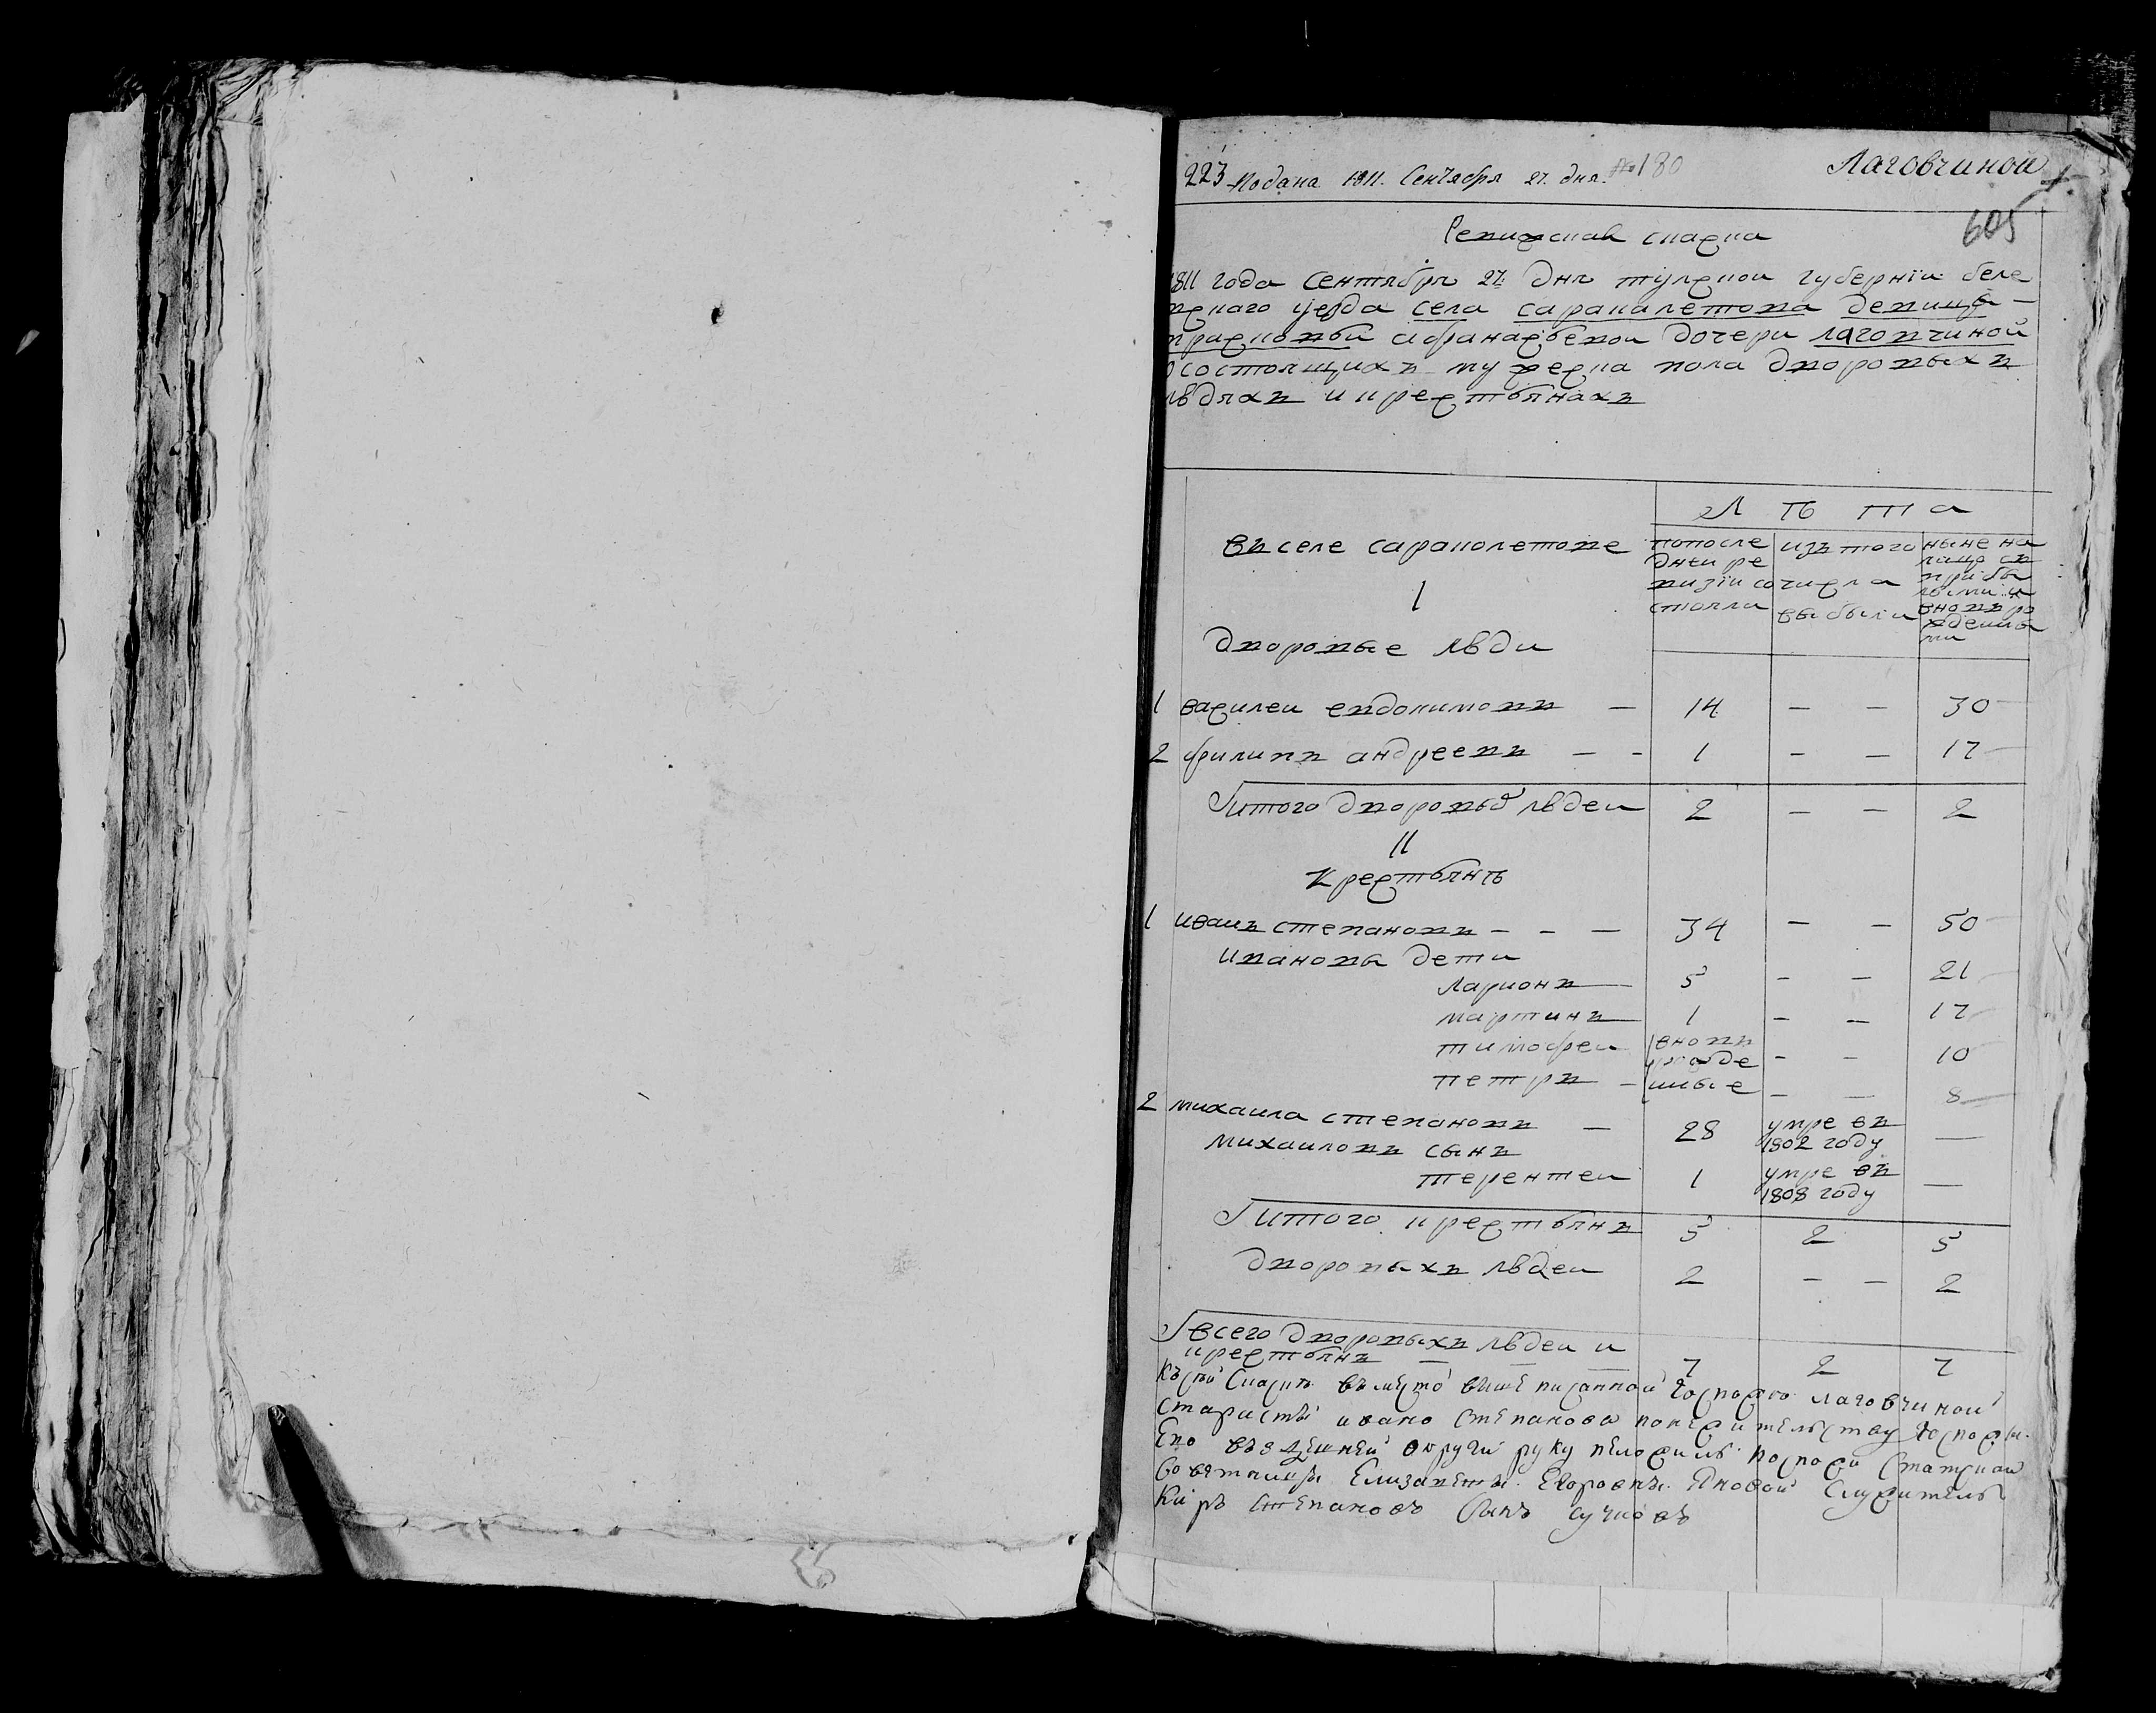 223 Подана 1811. Сентября 27. дня. № 180 Лаговчиной
605
Ревижская скаска
1811 года сентября 27: дня тулской губернїи беле
вскаго уезда села сараколетова девицы
прасковьи афанасьевой дочери лаговчиной
о состоящихъ мужеска пола дворовыхъ
людяхъ и крестьянахъ
Л ѣ т а
въ селе сараколетове
попосле дней ре визїи со стояли
изъ того числа выбыли
ныне на лицо съ прибы лыми и вновъ ро жденны ми
I
дворовые люди
1 василеи евдокимовъ — 14 — — 30
2 филипъ андреевъ — — 1 — — 17
Итого дворовых людеи 2 — — 2
II
крестьянѣ
1 иванъ степановъ — — — 34 — — 50
ивановы дети
ларионъ 5 — — 21
мартинъ 1 — — 17
тимофеи вновь рожде — — 10
петръ — нные — — 8
2 михаила степановъ — 28 умре въ 1802 году —
михаиловъ сынъ
терентеи 1 умре въ 1808 году —
Итого крестьянъ 5 2 5
дворовыхъ людеи 2 — — 2
Всего дворовыхъ людеи и
крестьянъ — — — 7 2 7
Къ сей скаске въместо вышеписанной госпожи лаговчиной
старосты ивано степанова госпожи
Ево въздешней округи руку приложилъ госпожи статской
советницы Елизаветы Егоровны служитель
Киръ степановъ сынъ сучковъ